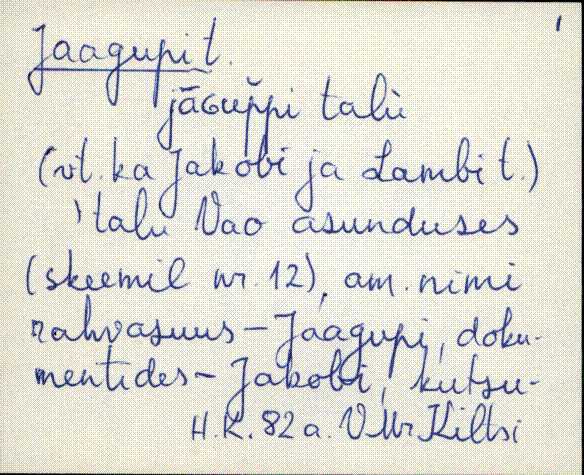 1
Jaagupi t.
jāGup̆pi talù
(vt. ka Jakobi ja Lambi t.)
'talu Vao asunduses
(skeemil nr. 12), am. nimi
rahvasuus – Jaagupi, doku-
mentides – Jakobi, kutsu-
H.K. 82 a. VMr Kiltsi